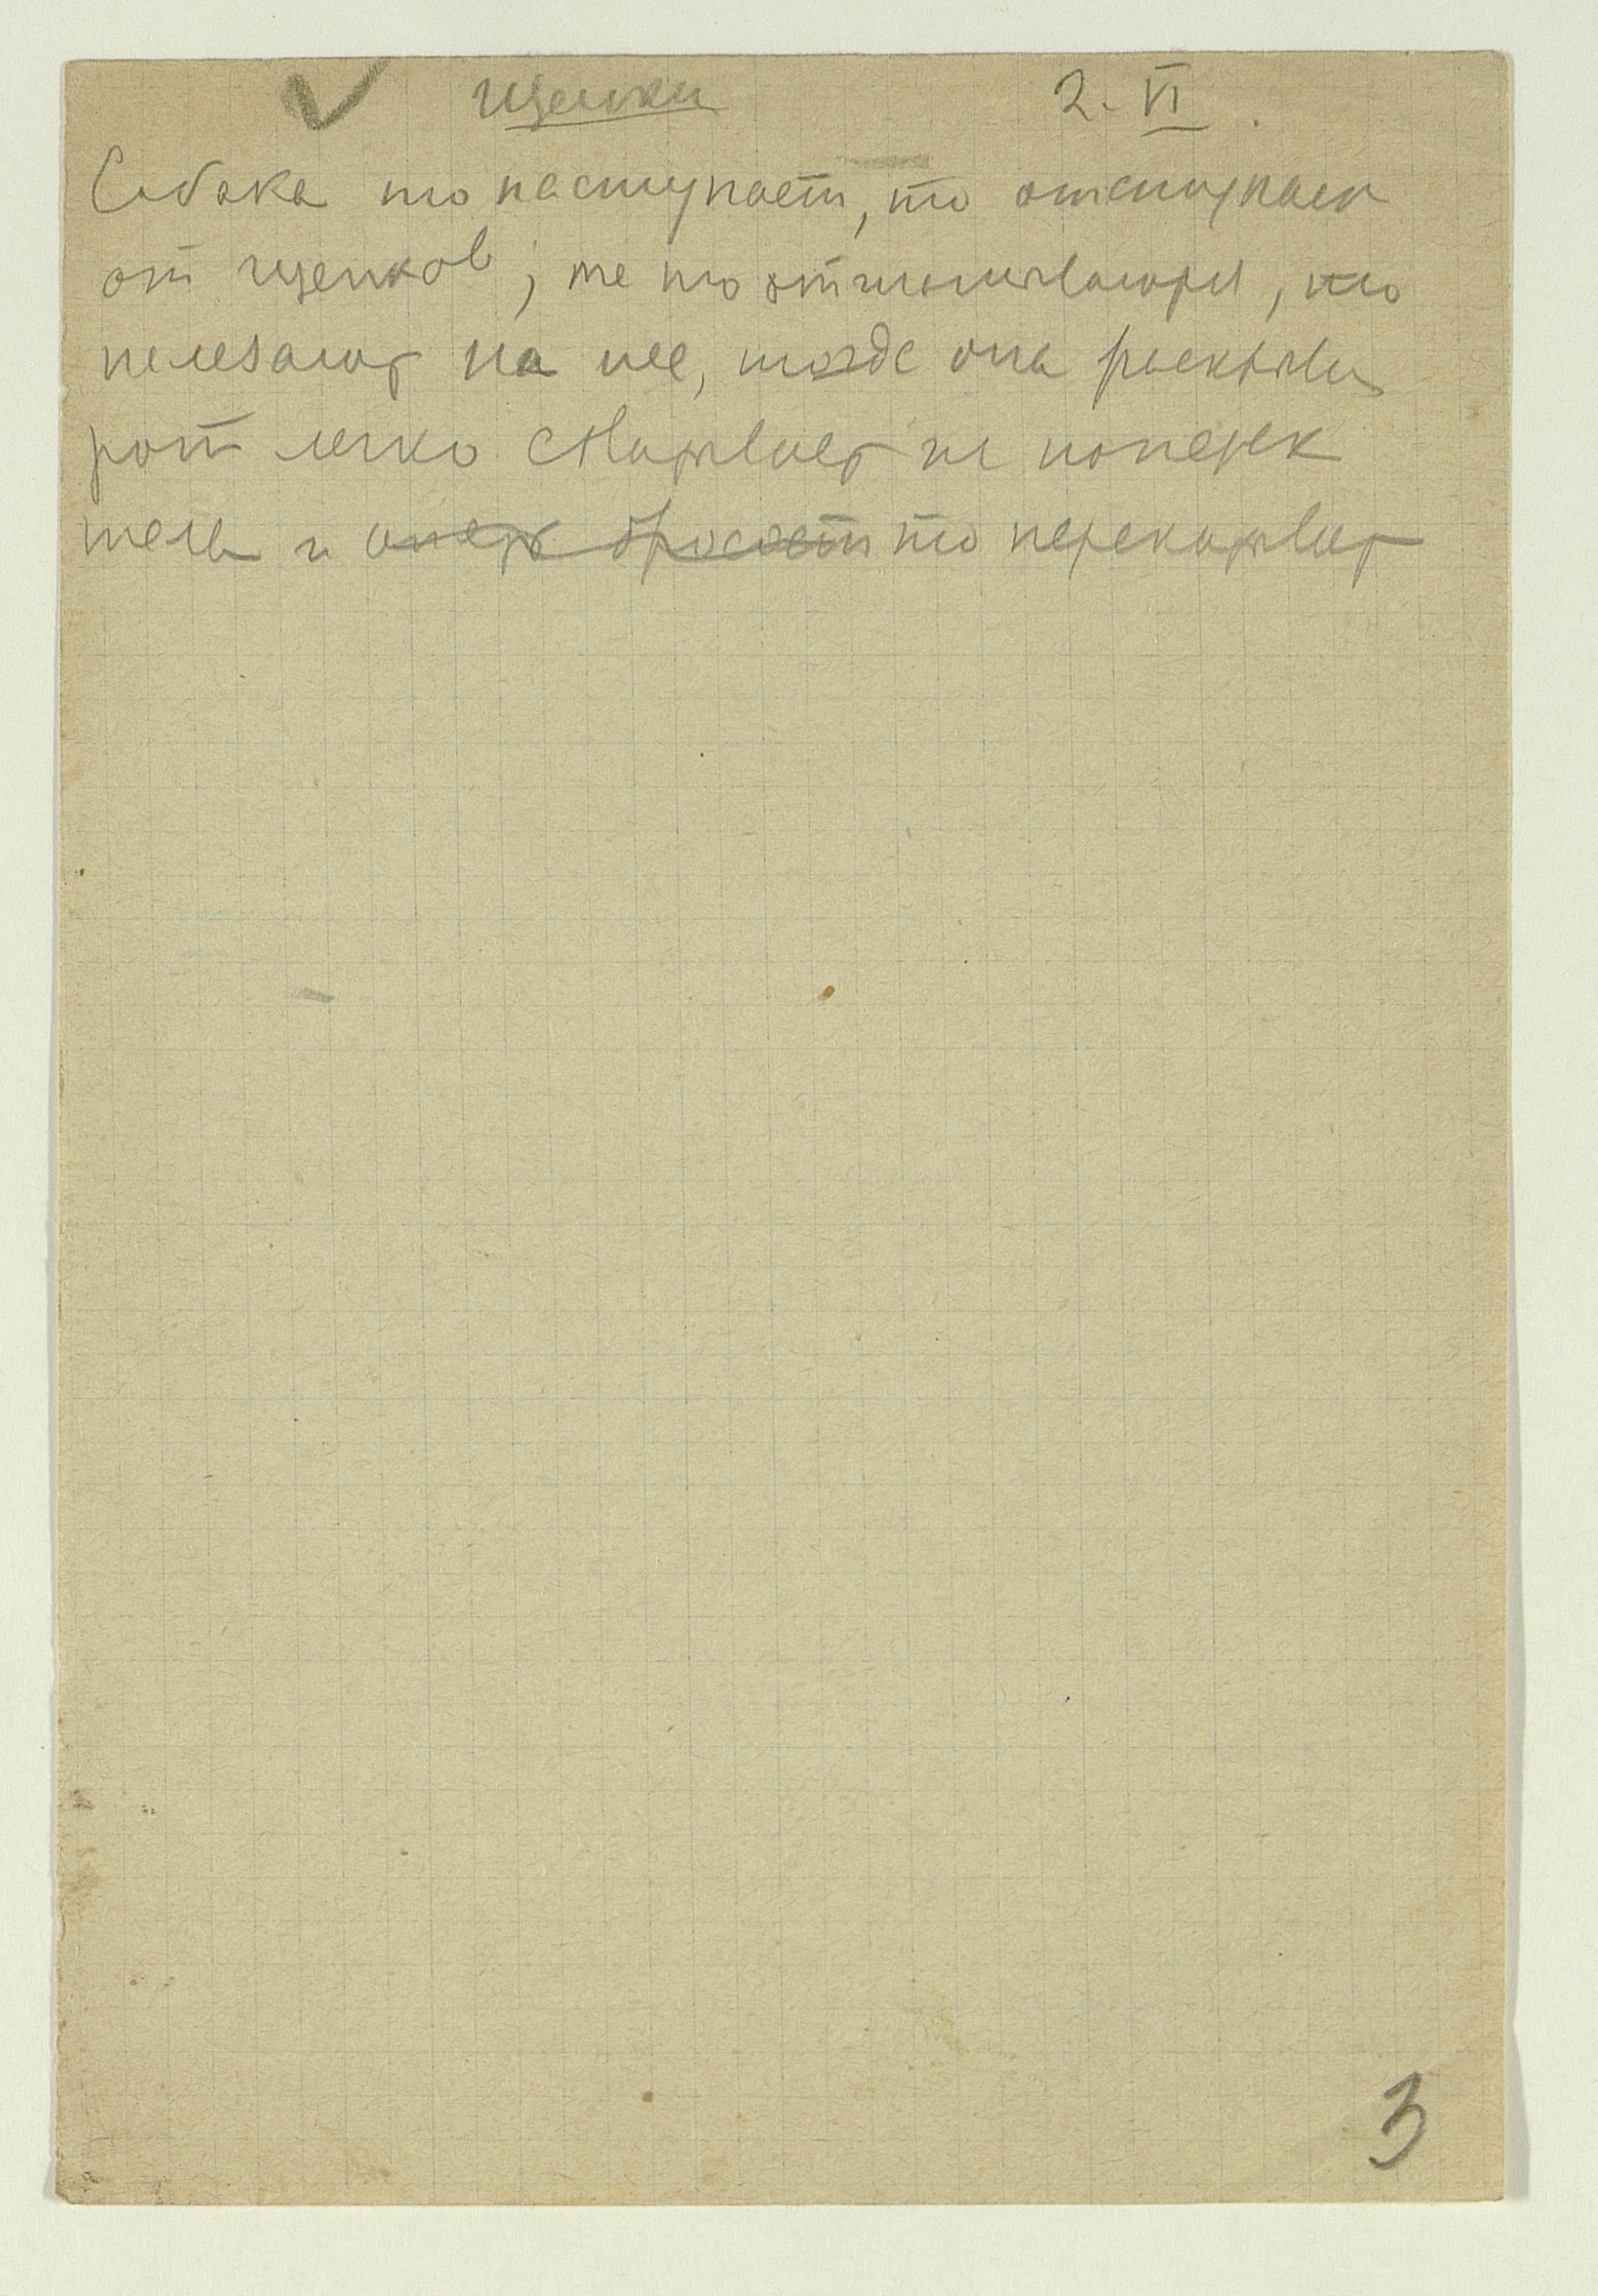 щенки 2. VI.
Собака то наступает, то отступает
от щенков; те то отшатываются, то
налезают на нее, тогда она раскрыв
рот легко схватывает их поперек
тела и опять бросает то перекатывает
3